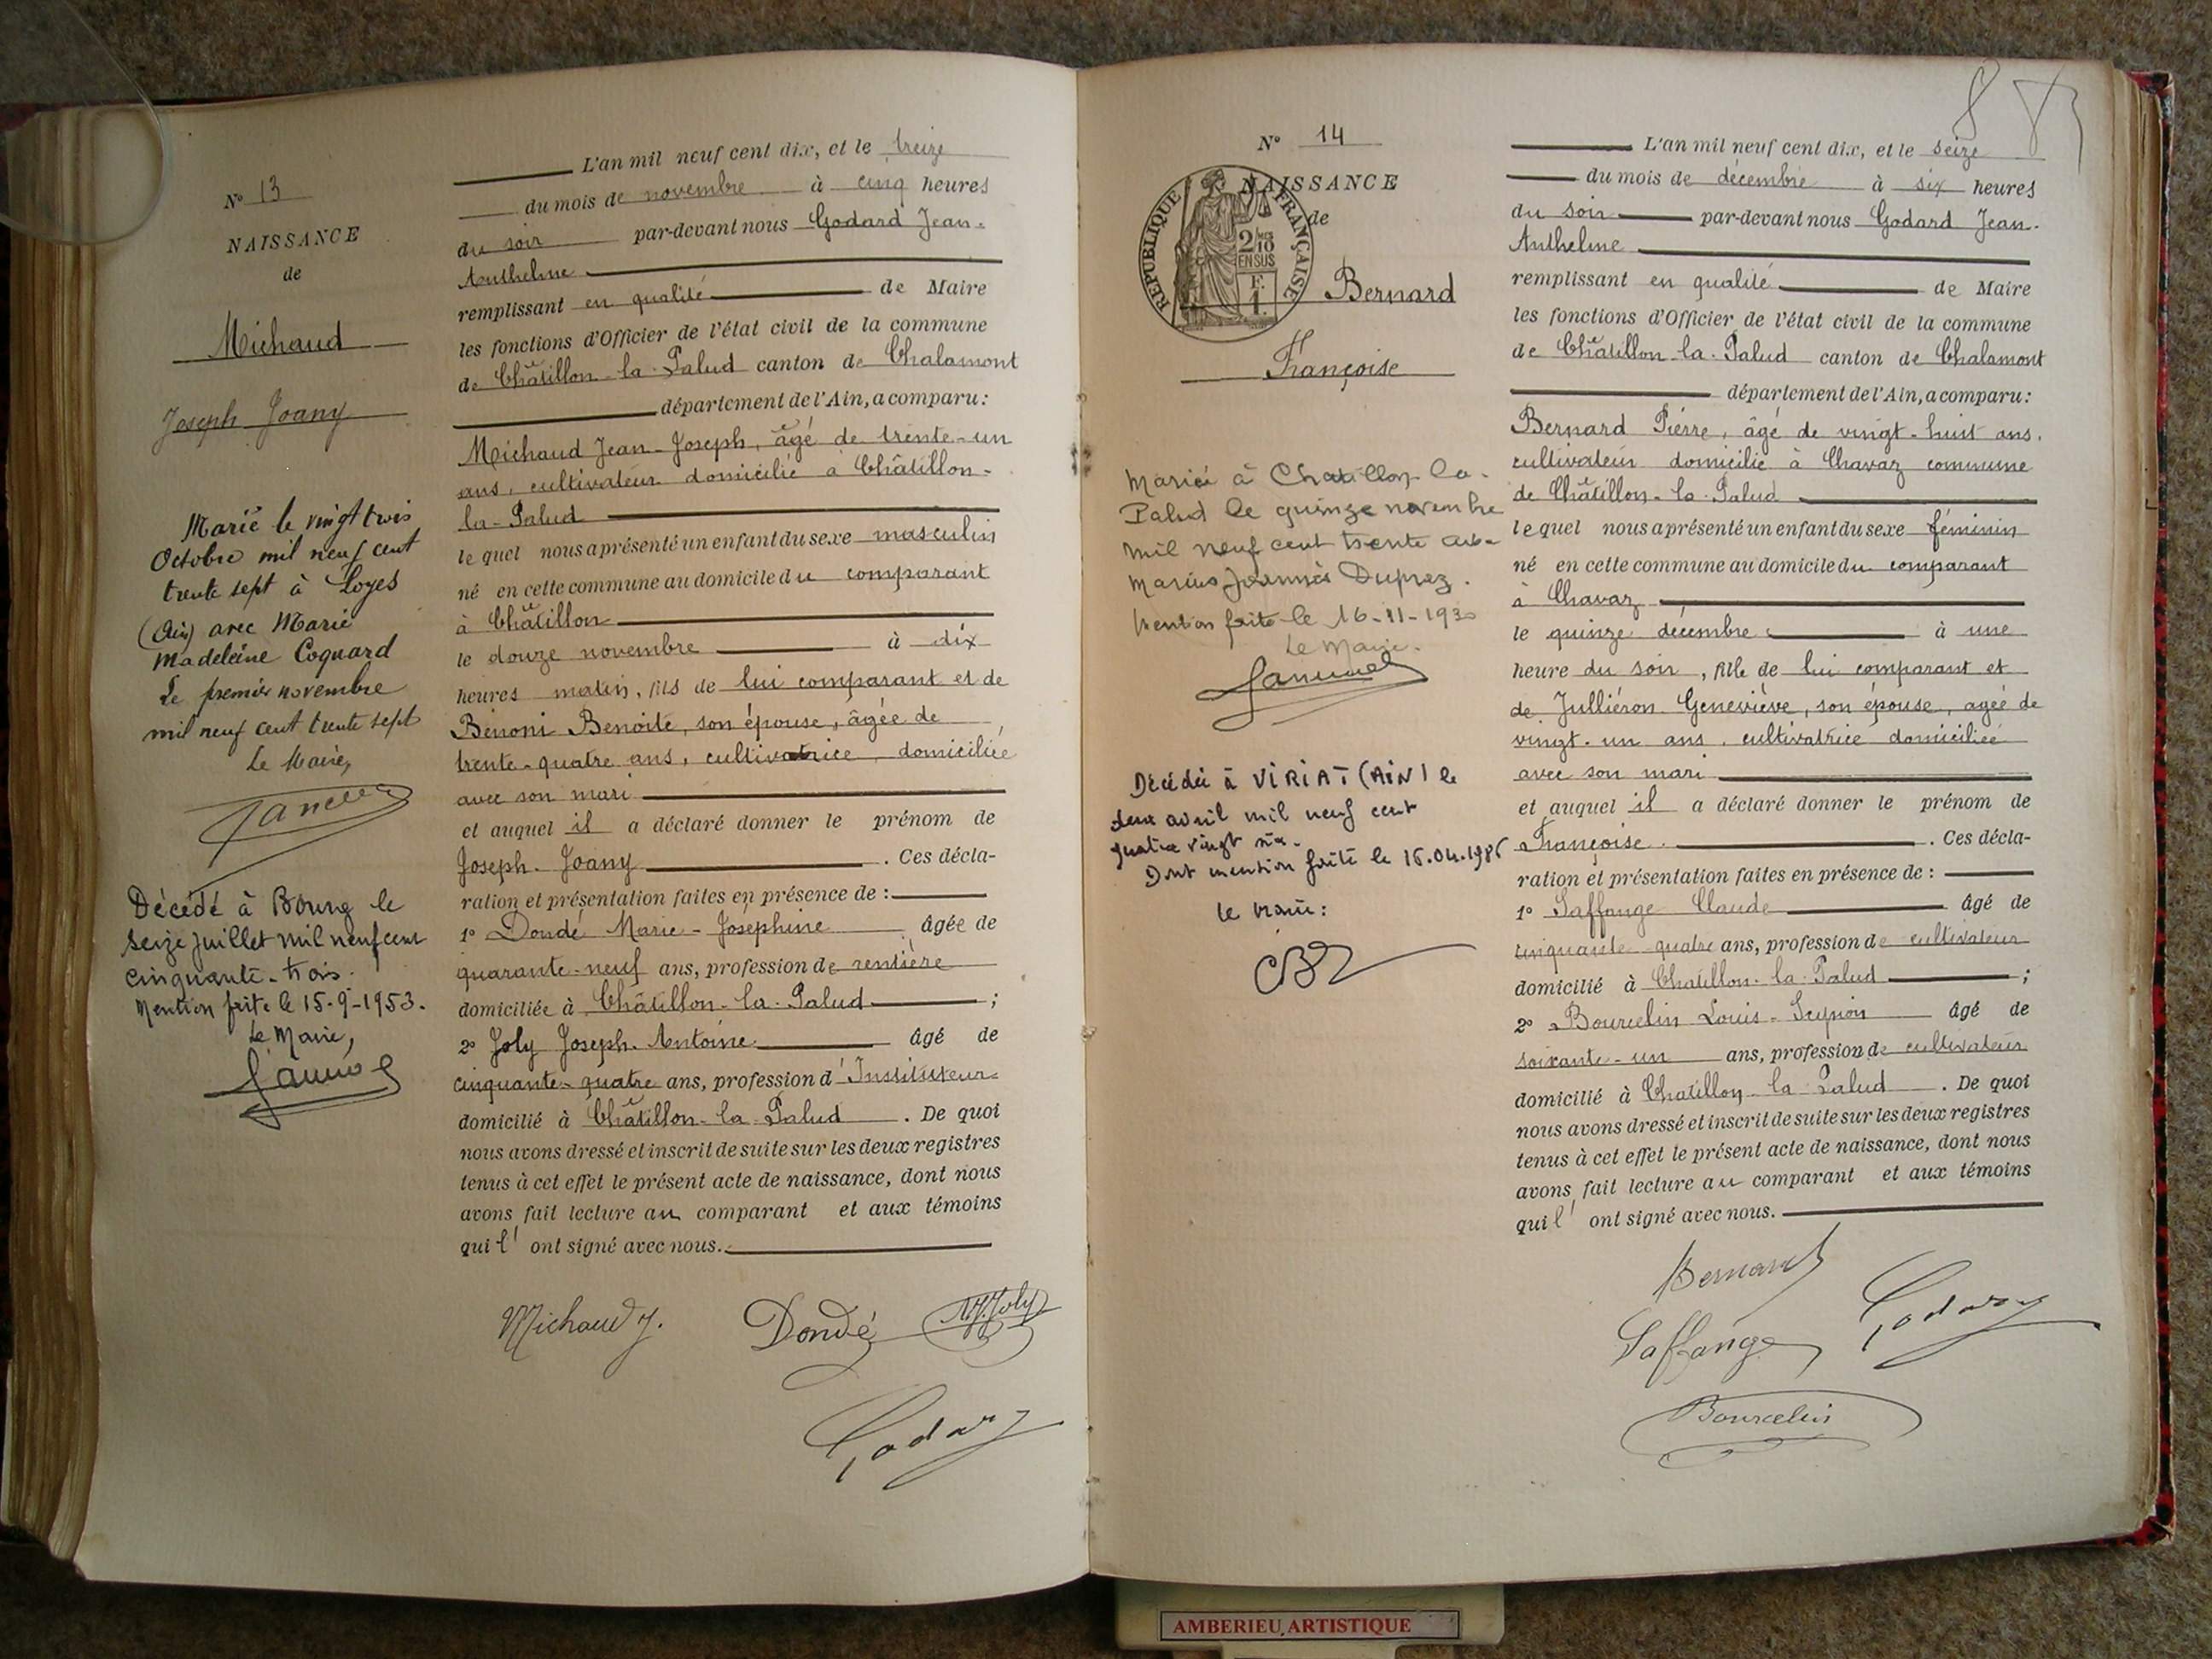 Nº 13
NAISSANCE
de
Michaud
Joseph Joany
Marié le vingt trois
Octobre mil neuf cent
trente sept à Loyes
(Ain) avec Marie
Madeleine Coquard
Le premier novembre
mil neuf cent trente sept
Le Maire,
Décédé à Bourg le
seize juillet mil neuf cent
cinquante-trois.
Mention faite le 15-9-1953.
Le Maire,
L'an mil neuf cent dix, et le treize
du mois de novembre à cinq heures
du soir par-devant nous Godard Jean-
Anthelme
remplissant en qualité de Maire
les fonctions d'Officier de l'état civil de la commune
de Châtillon-la-Palud canton de Chalamont
département de l'Ain, a comparu:
Michaud Jean-Joseph, âgé de trente-un
ans, cultivateur domicilié à Châtillon-
la-Palud
lequel nous a présenté un enfant du sexe masculin
né en cette commune au domicile du comparant
à Châtillon
le douze novembre à dix
heures matin, fils de lui comparant et de
Bénoni Benoite, son épouse, âgée de
trente-quatre ans, cultivatrice, domiciliée
avec son mari
et auquel il a déclaré donner le prénom de
Joseph-Joany . Ces décla-
ration et présentation faites en présence de :
1º Dondé Marie-Joséphine âgée de
quarante-neuf ans, profession de rentière
domiciliée à Châtillon-la-Palud ;
2º Joly Joseph-Antoine âgé de
cinquante-quatre ans, profession d'Instituteur
domicilié à Châtillon-la-Palud . De quoi
nous avons dressé et inscrit de suite sur les deux registres
tenus à cet effet le présent acte de naissance, dont nous
avons fait lecture au comparant et aux témoins
qui l' ont signé avec nous.
Michaud J. Dondé Joly
Godard
Nº 14
NAISSANCE
de
RÉPUBLIQUE FRANÇAISE
2/10
EN SUS
F.
1.
Bernard
Françoise
Mariée à Chatillon-la-
Palud le quinze novembre
mil neuf cent trente avec
Marius Joannès Duprez.
Mention faite le 16-11-1930
Le Maire.
Décédée à VIRIAT (AIN) le
deux avril mil neuf cent
quatre vingt six.
Dont mention faite le 16.04.1986
le Maire:
L'an mil neuf cent dix, et le seize
du mois de décembre à six heures
du soir par-devant nous Godard Jean-
Anthelme
remplissant en qualité de Maire
les fonctions d'Officier de l'état civil de la commune
de Châtillon-la-Palud canton de Chalamont
département de l'Ain, a comparu:
Bernard Pierre, âgé de vingt-huit ans,
cultivateur domicilié à Chavaz commune
de Châtillon-la-Palud
lequel nous a présenté un enfant du sexe féminin
né en cette commune au domicile du comparant
à Chavaz
le quinze décembre à une
heure du soir, fille de lui comparant et
de Julliéron Geneviève, son épouse, agée de
vingt-un ans, cultivatrice domiciliée
avec son mari
et auquel il a déclaré donner le prénom de
Françoise . Ces décla-
ration et présentation faites en présence de :
1º Laffange Claude âgé de
cinquante-quatre ans, profession de cultivateur
domicilié à Chatillon-la-Palud ;
2º Bourcelin Louis-Scipion âgé de
soixante-un ans, profession de cultivateur
domicilié à Chatillon la Palud . De quoi
nous avons dressé et inscrit de suite sur les deux registres
tenus à cet effet le présent acte de naissance, dont nous
avons fait lecture au comparant et aux témoins
qui l' ont signé avec nous.
Bernard
Laffange Godard
Bourcelin
AMBERIEU ARTISTIQUE